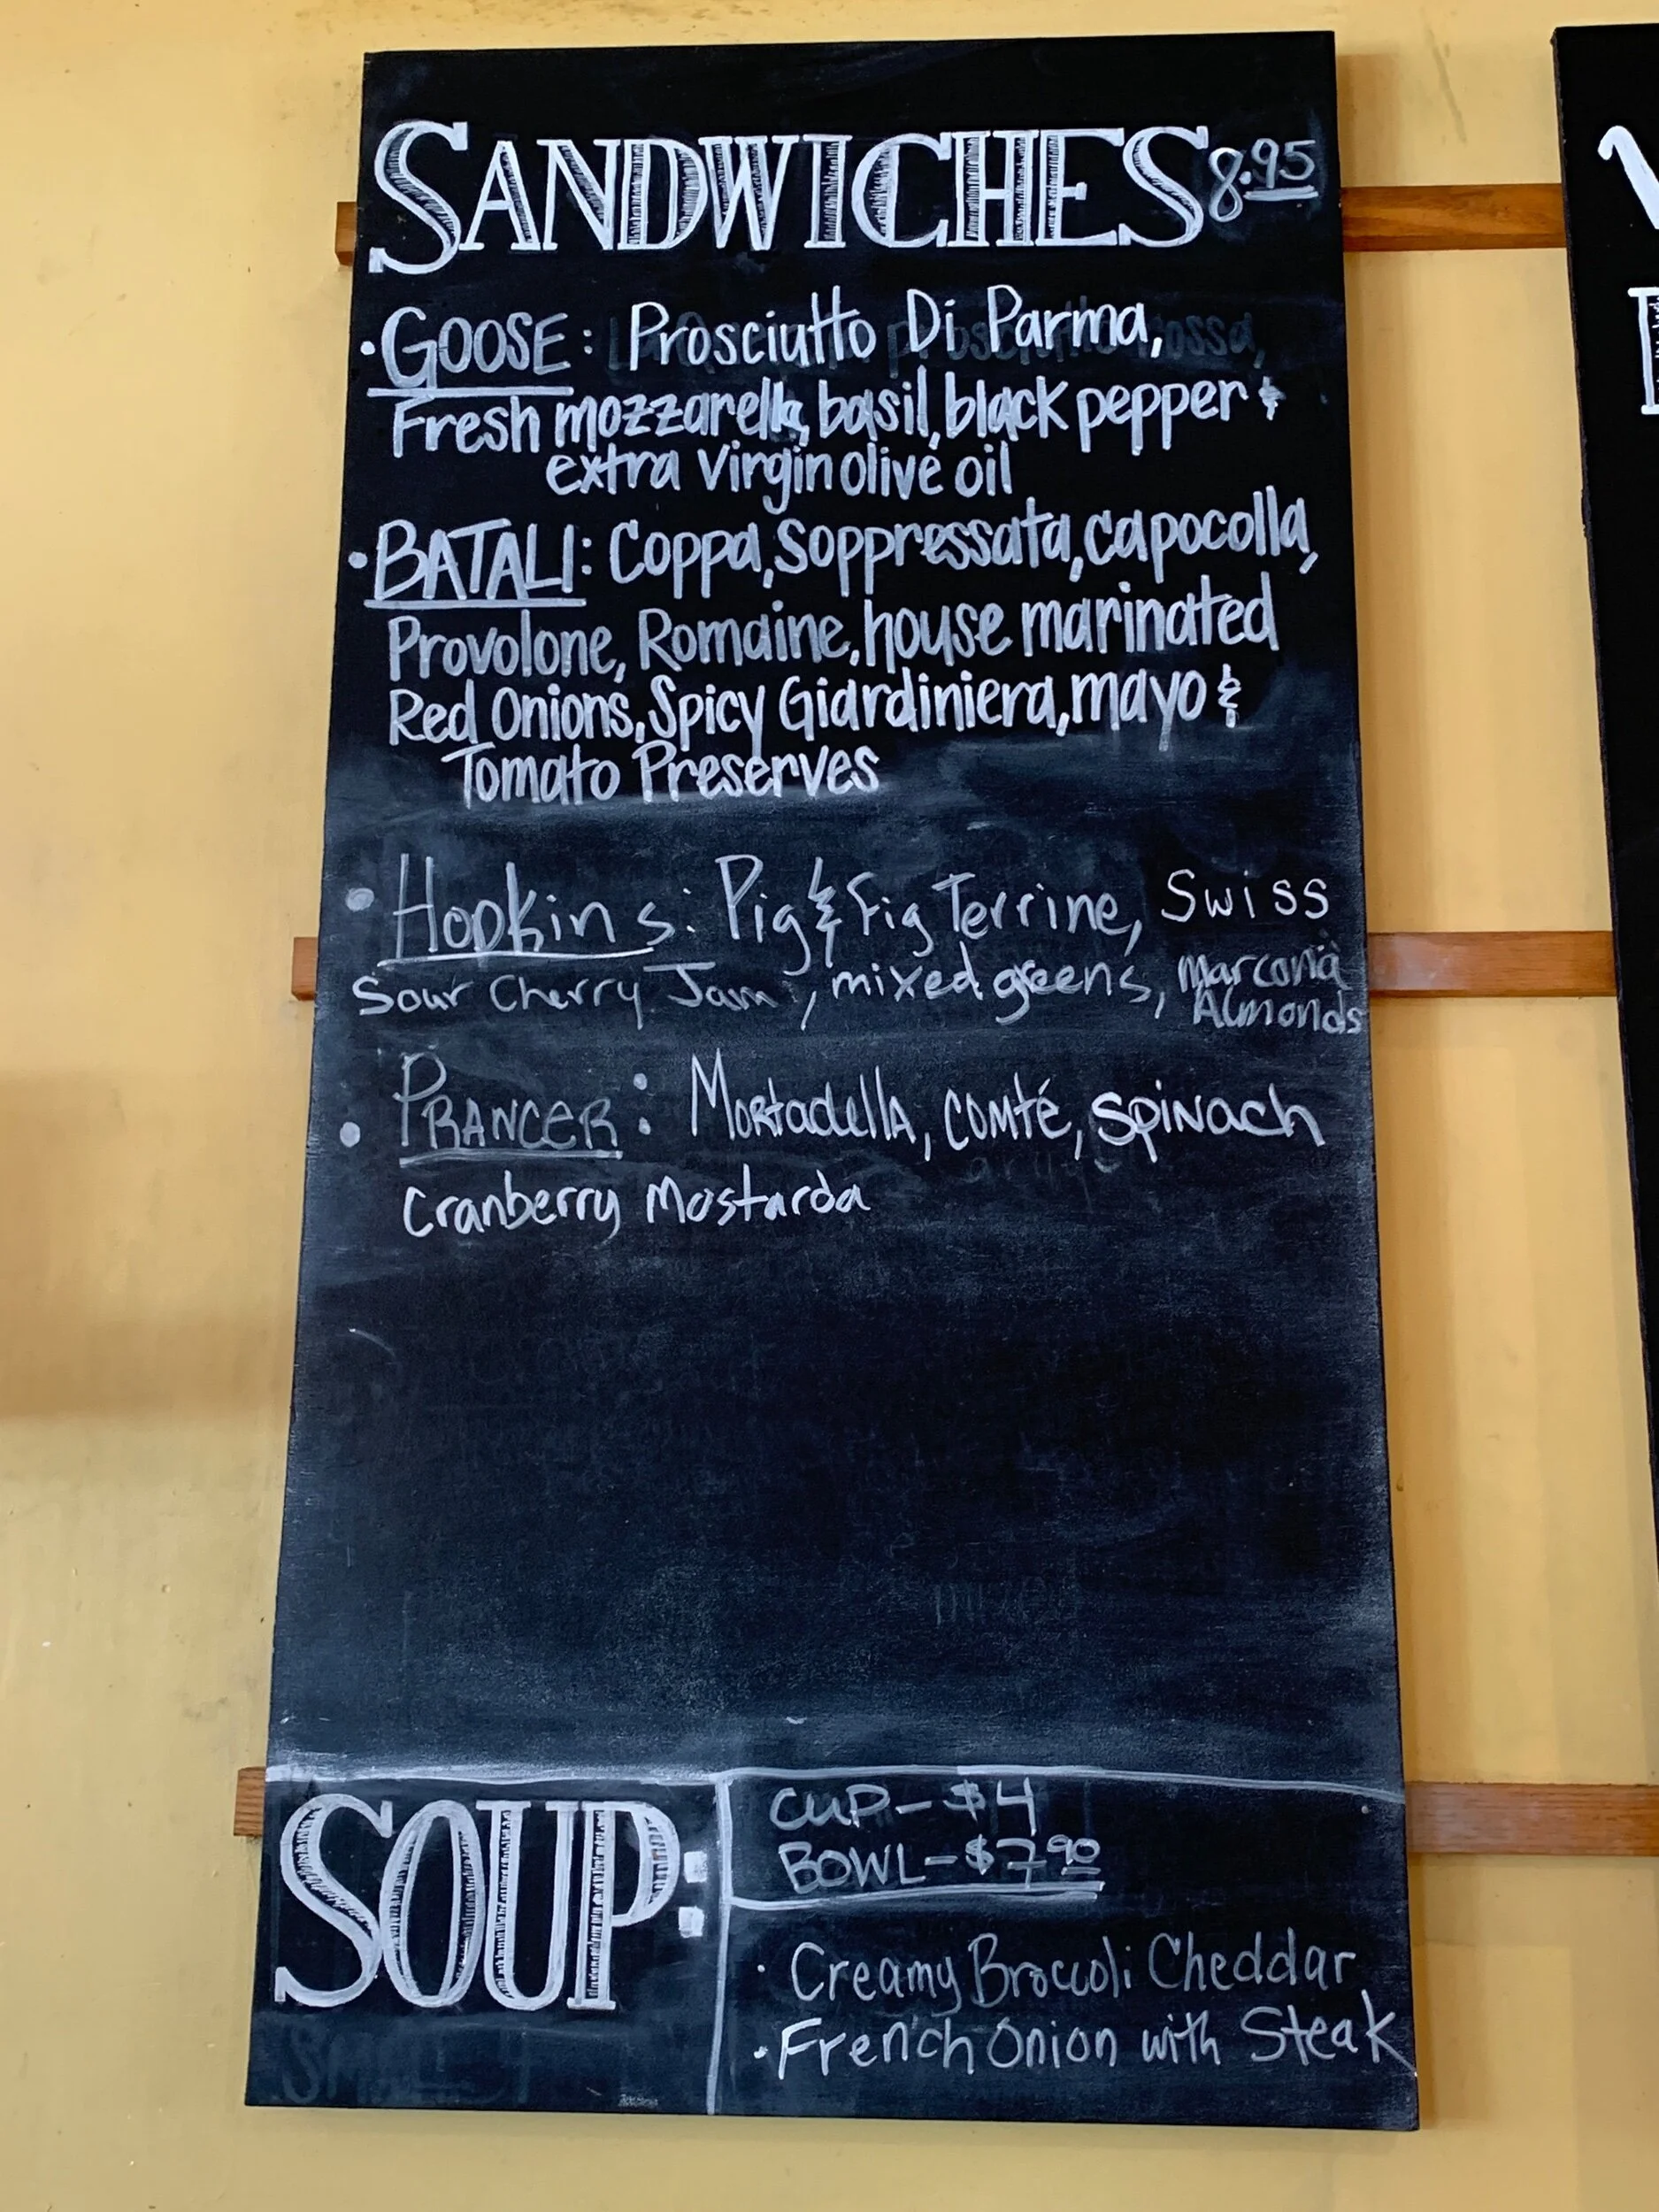 SANDWICHES 8.95
• GOOSE: Prosciutto Di Parma,
Fresh mozzarella, basil, black pepper &
extra virgin olive oil
• BATALI: Coppa, Soppressata, capocolla,
Provolone, Romaine, house marinated
Red Onions, Spicy Giardiniera, mayo &
Tomato Preserves
• Hopkins: Pig & Fig Terrine, Swiss
Sour Cherry Jam, mixed greens, Marcona
Almonds
• PRANCER: Mortadella, comté, spinach
Cranberry Mostarda
SOUP:
CUP - $4
BOWL - $7.90
• Creamy Broccoli Cheddar
• French Onion with Steak